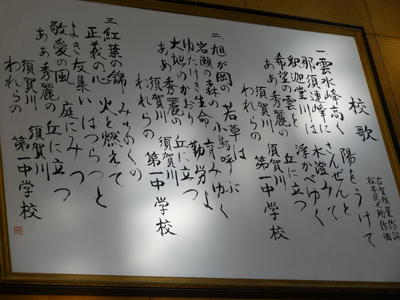 校歌
古賀残星作詞
松本民之助作曲
一 雲水峰高く 陽をうけて
那須連峰は さんぜんと
釈迦堂に 水澄みて
希望の雲を 浮かべゆく
ああ秀麗の 丘に立つ
須賀川 第一中学校
われらの
二 旭が岡の 若草は
岩瀬の森の 小鳥呼ぶ
ゆたけき生命 育みゆく
大地のかおり 勤労よ
ああ秀麗の 丘に立つ
須賀川 第一中学校
われらの
三 紅葉の錦 みちのくの
正義の心 火と燃えて
よき友集い はつらつと
敬愛の風 庭にみつ
ああ秀麗の 丘に立つ
須賀川 須賀川
われらの 第一中学校